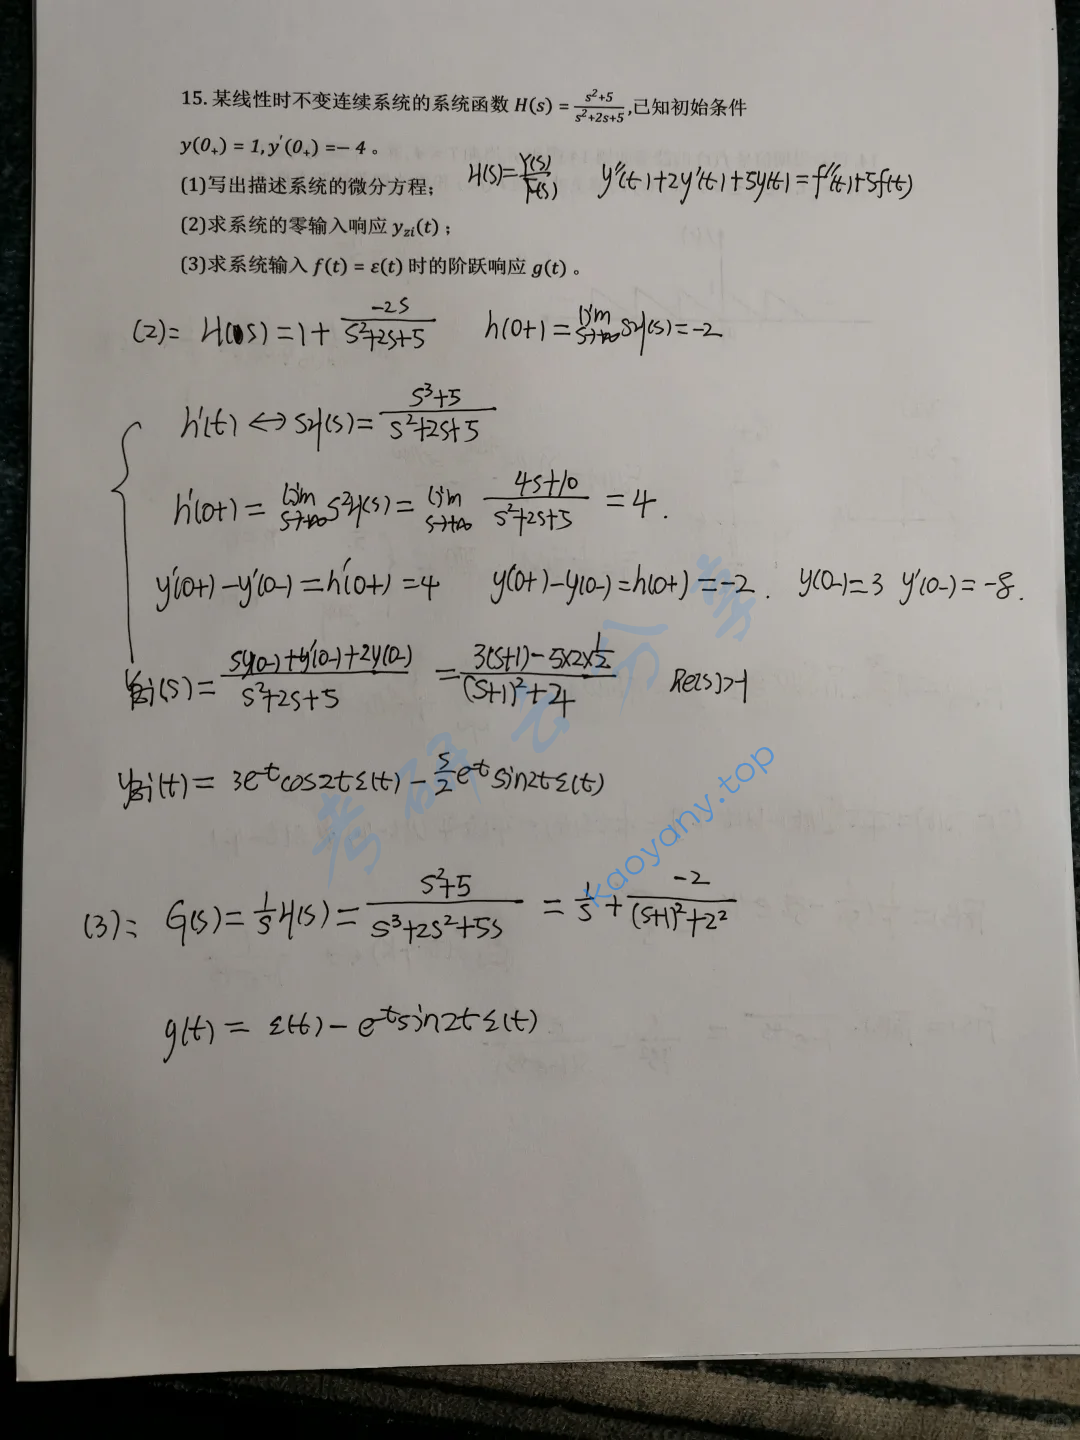 15. 某线性时不变连续系统的系统函数 H(s) = \frac{s^2+5}{s^2+2s+5},已知初始条件
y(0₊) = 1, y′(0₊) =− 4 。
(1)写出描述系统的微分方程; H(s)=\frac{Y(s)}{F(s)} y″(t)+2y′(t)+5y(t)=f″(t)+5f(t)
(2)求系统的零输入响应 y_{zi}(t) ;
(3)求系统输入 f(t) = ε(t) 时的阶跃响应 g(t) 。
(2): H(s)=1+\frac{-2s}{s^2+2s+5} h(0+)=\lim_{s→+∞}sH(s)=-2
h′(t)↔sH(s)=\frac{s^3+5}{s^2+2s+5}
h′(0+)=\lim_{s→+∞}s^2H(s)=\lim_{s→+∞}\frac{4s+10}{s^2+2s+5}=4.
y′(0+)-y′(0-)=h′(0+)=4 y(0+)-y(0-)=h(0+)=-2. y(0-)=3 y′(0-)=-8.
Y_{zi}(s)=\frac{sy(0-)+y′(0-)+2y(0-)}{s^2+2s+5}=\frac{3(s+1)-5×2×\frac{1}{2}}{(s+1)^2+4} Re(s)>-1
y_{zi}(t)=3e^{-t}cos2tε(t)-\frac{5}{2}e^{-t}sin2tε(t)
(3): G(s)=\frac{1}{s}H(s)=\frac{s^2+5}{s^3+2s^2+5s}=\frac{1}{s}+\frac{-2}{(s+1)^2+2^2}
g(t)=ε(t)-e^{-t}sin2tε(t)
考研云分享
kaoyany.top